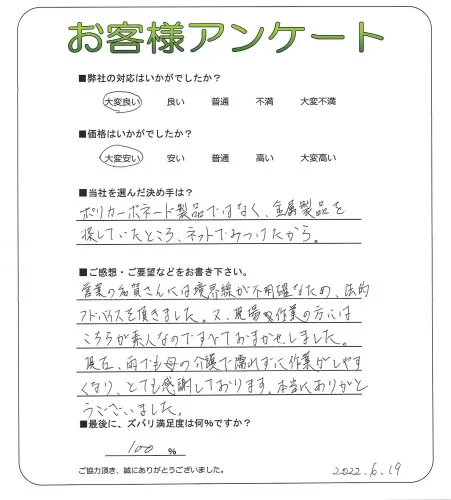 お客様アンケート
■弊社の対応はいかがでしたか？
大変良い 良い 普通 不満 大変不満
■価格はいかがでしたか？
大変安い 安い 普通 高い 大変高い
■当社を選んだ決め手は？
ポリカーボネード製品ではなく、金属製品を
探していたところ、ネットでみつけたから。
■ご感想・ご要望などをお書き下さい。
営業の名賀さんには境界線が不明確なため、法的
アドバイスを頂きました。又、現場作業の方には
こちらが素人なのですべておまかせしました。
現在、雨でも母の介護で濡れずに作業がしやす
くなり、とても感謝しております。本当にありがと
うございました。
■最後に、ズバリ満足度は何％ですか？
100 %
ご協力頂き、誠にありがとうございました。
2022.6.19